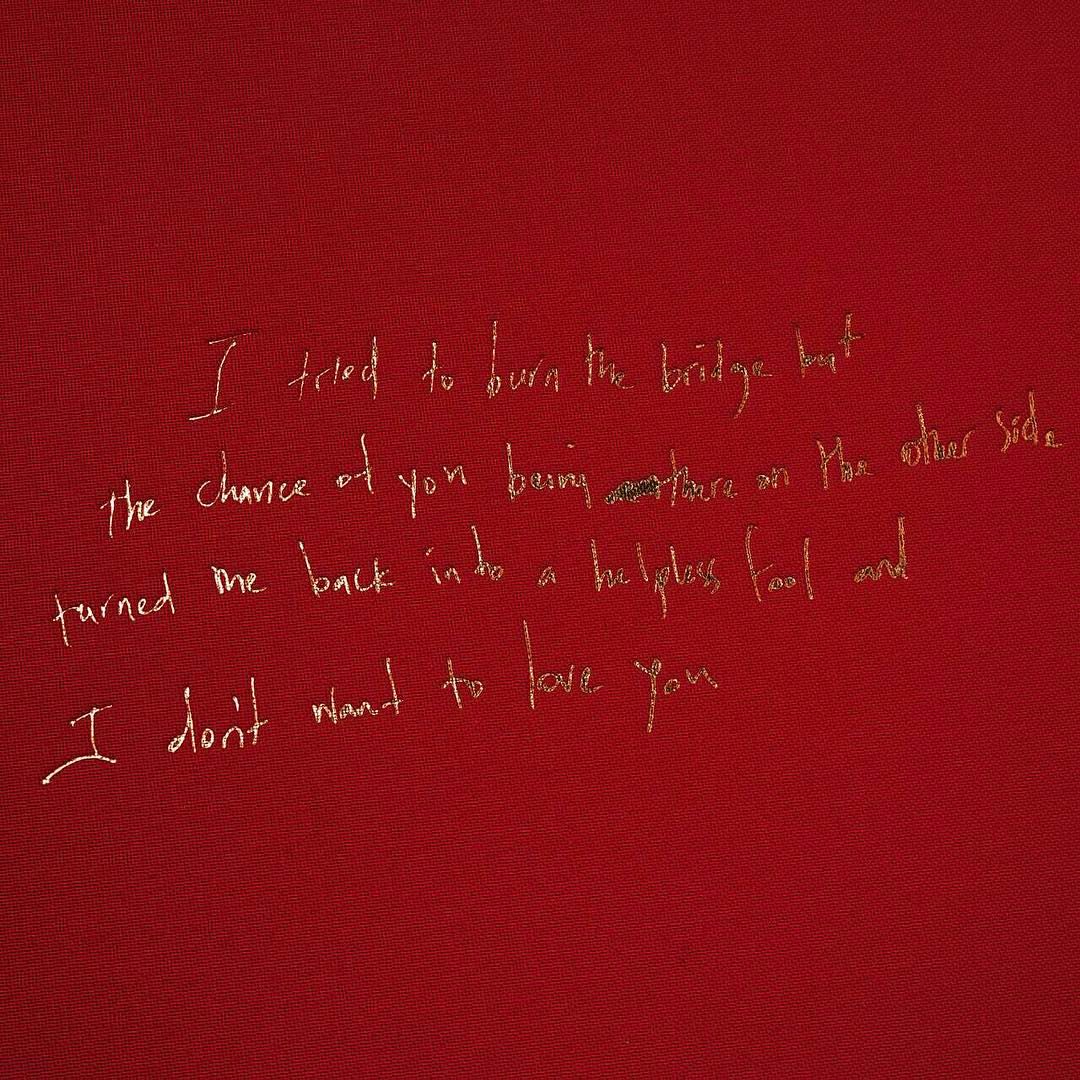 I tried to burn the bridge but
the chance of you being there on the other side
turned me back into a helpless fool and
I don't want to love you